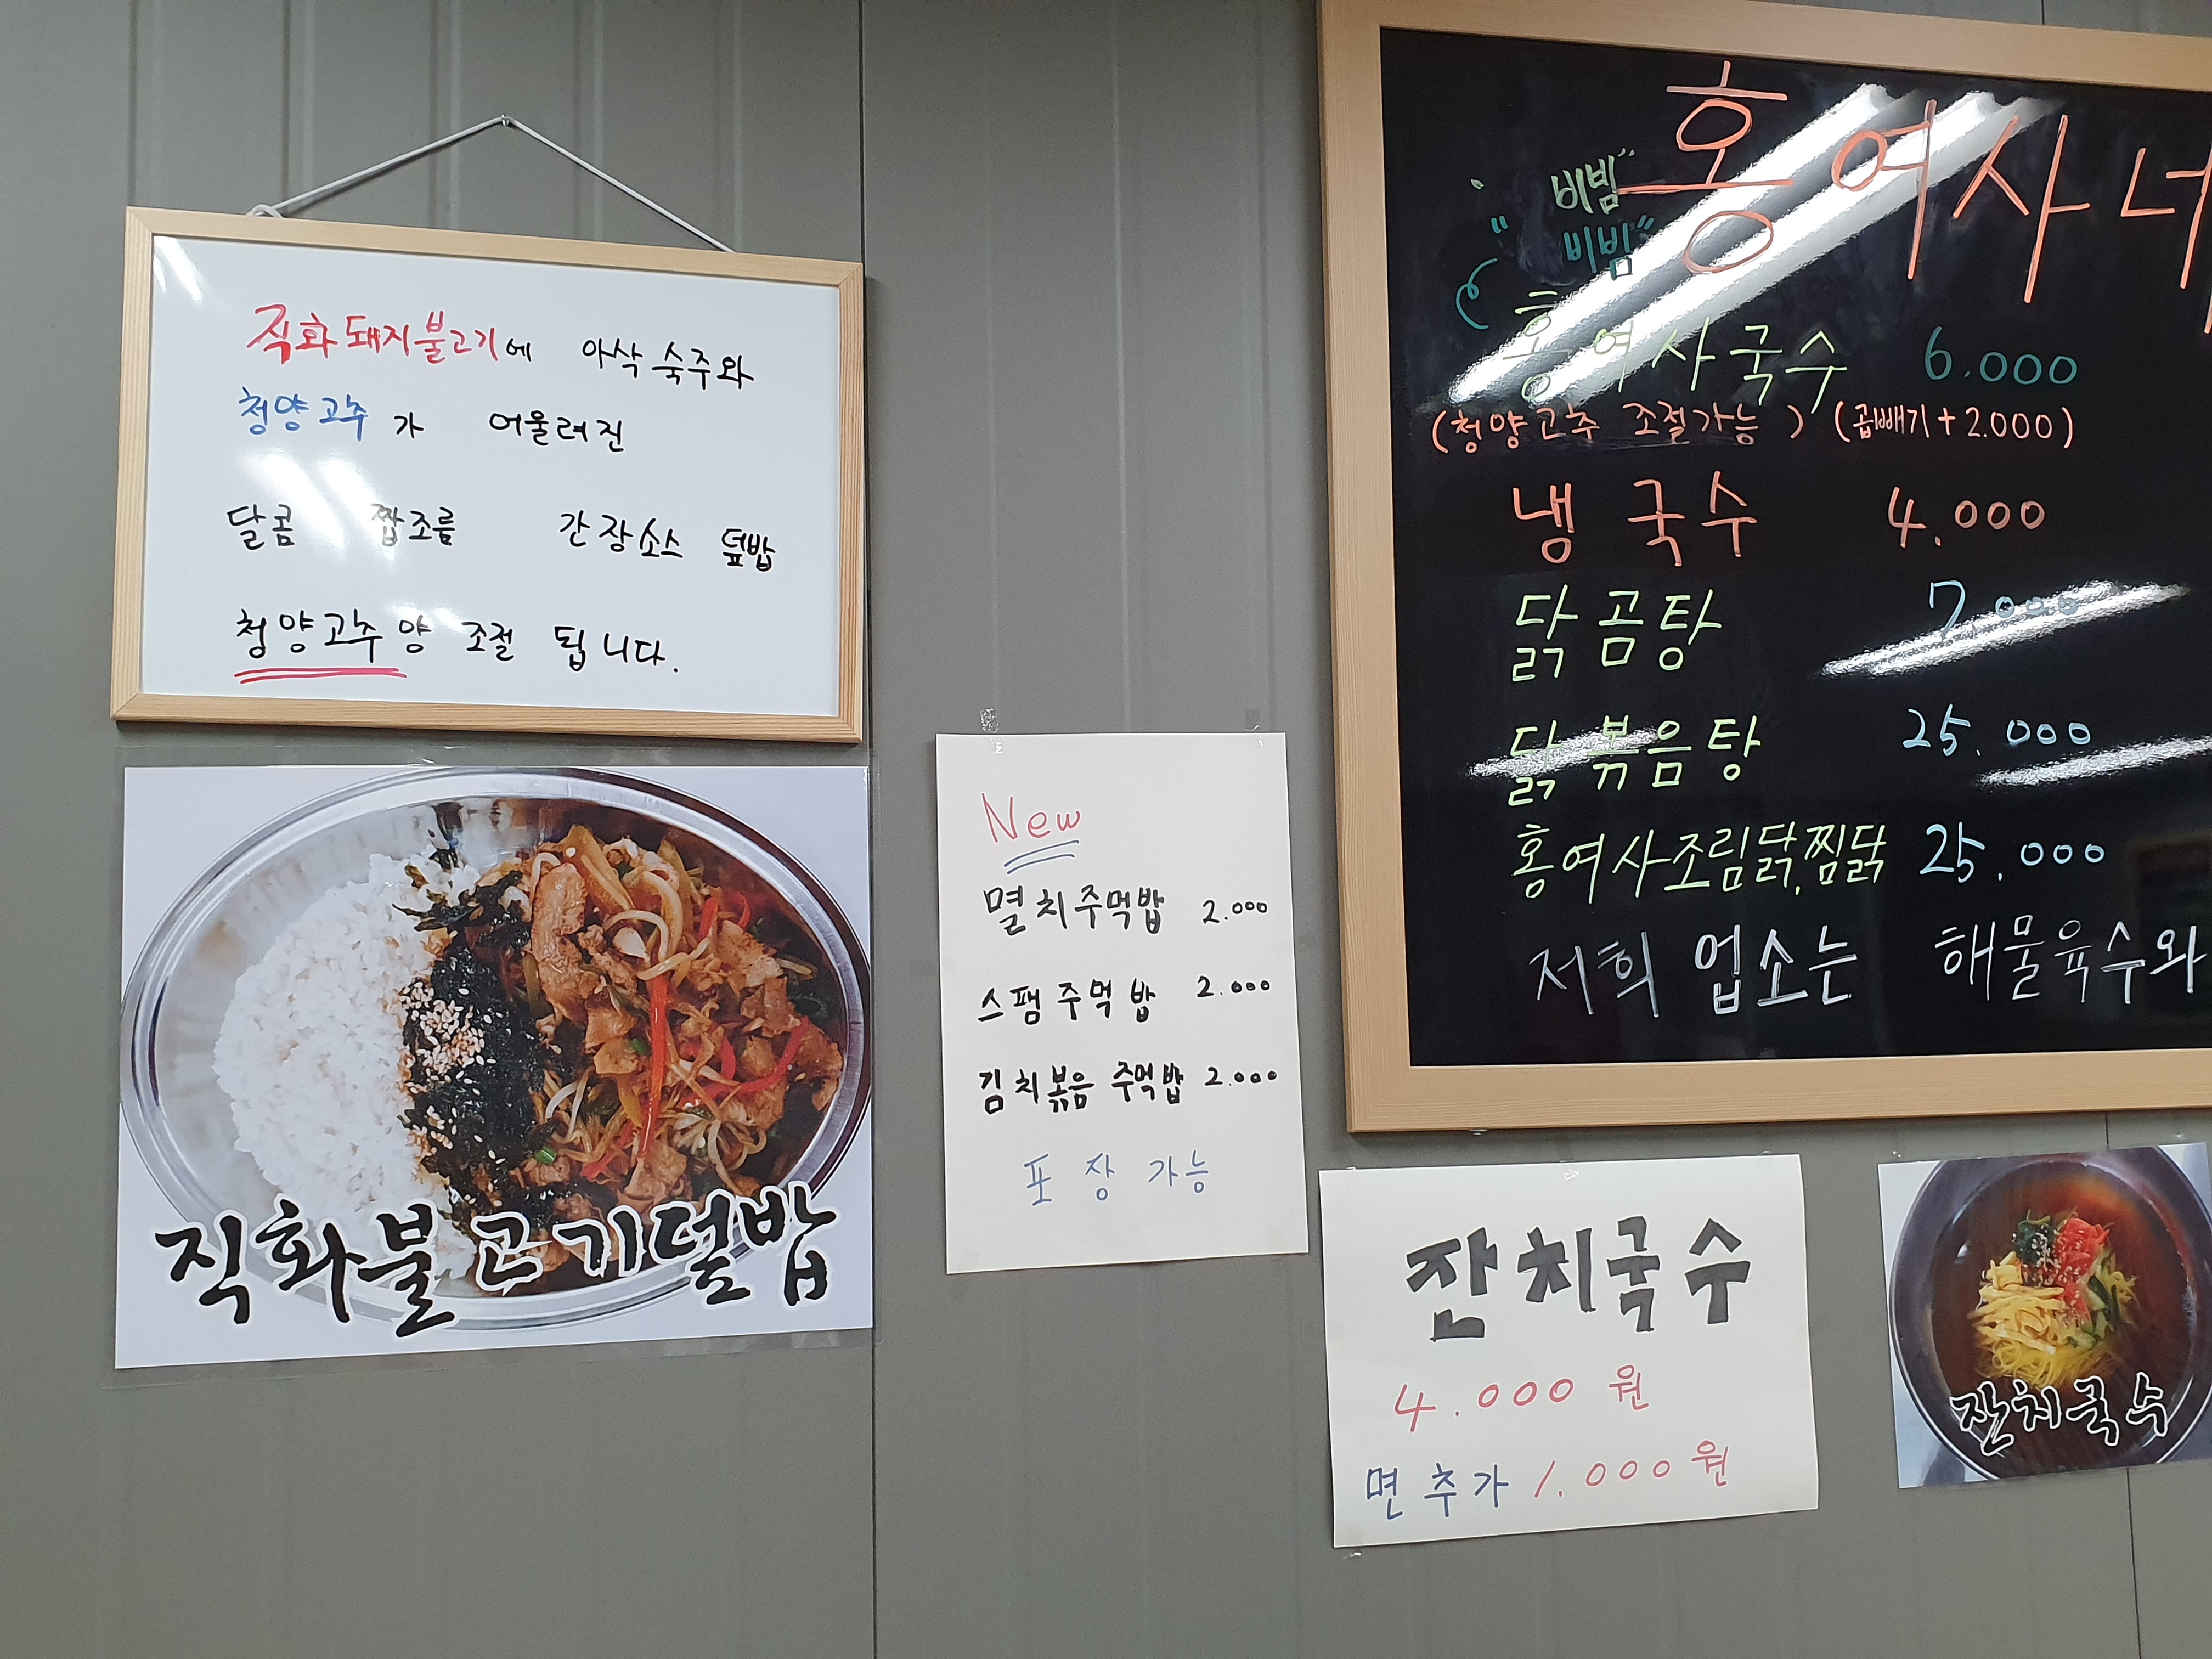 직화돼지불고기에 아삭 숙주와
청양고추가 어울려진
달콤 짭조름 간장소스 덮밥
청양고추양 조절 됩니다.
직화불고기덮밥
New
멸치주먹밥 2.000
스팸주먹밥 2.000
김치볶음 주먹밥 2.000
포장가능
홍여사네
비빔"
"비빔"
홍여사국수 6.000
(청양고추 조절가능) (곱빼기+2.000)
냉국수 4.000
닭곰탕 7.000
닭볶음탕 25.000
홍여사조림닭,찜닭 25.000
저희 업소는 해물육수와
잔치국수
4.000원
면추가 1.000원
잔치국수